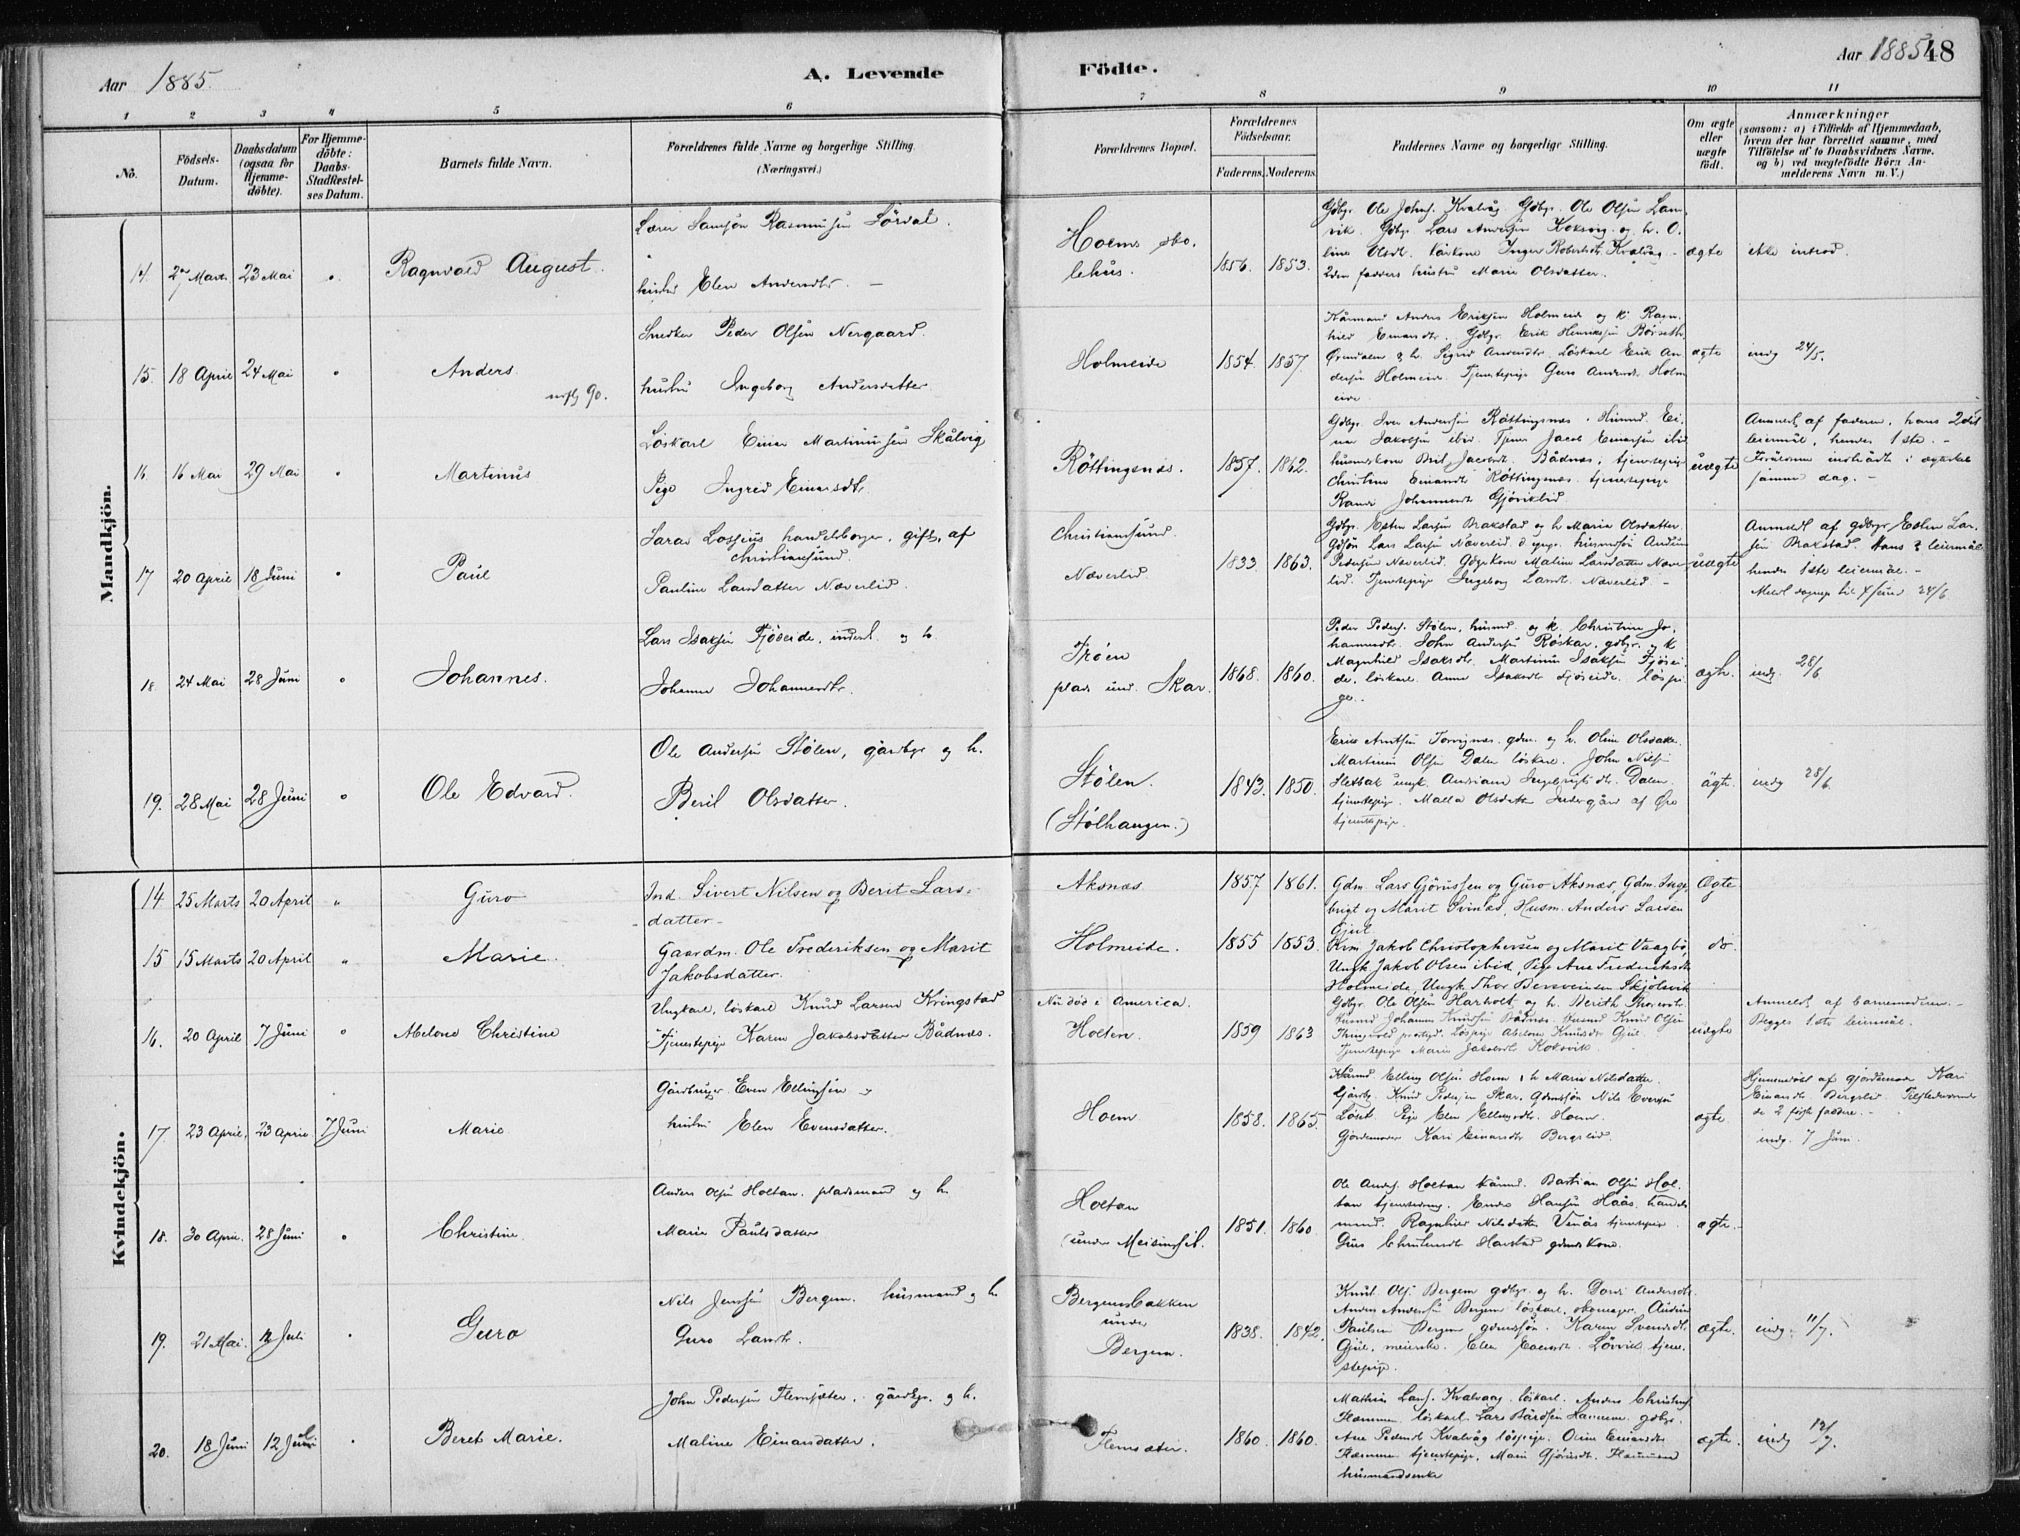 Aar 1885
A. Levende
Födte.
Aar 1885
48
1 2 3 4 5 6 7 8 9 10 11
No.
Födsels-
Datum.
Daabsdatum
(ogsaa for
Hjemme-
döbte).
For Hjemme-
döbte:
Daabs-
Stadfæstel-
ses Datum.
Barnets fulde Navn.
Forældrenes fulde Navne og borgerlige Stilling.
(Næringsvei.)
Forældrenes Bopæl.
Forældrenes
Födselsaar.
Faderens. Moderens.
Faddernes Navne og borgerlige Stilling.
Om ægte
eller
uægte
födt.
Anmærkninger
(saasom: a) i Tilfælde af Hjemmedaab,
hvem der har forrettet samme, med
Tilföielse af to Daabsvidners Navne,
og b) ved uægtefödte Börn An-
melderens Navn m. V.)
Mandkjön.
14 27 Marts 23 Mai " Ragnvald August.
Lærer Samsön Rasmussen Sörval.
hustru Elen Andersdtr. —
Holms sko-
lehus.
1856. 1853.
Gdbgr. Ole Johns. Kvalvåg. Gdbgr. Ole Olsen
Gdbgr. Lars Andersen Koksvig og h. O-
line Olsdt. Inger Robertsdt. Kvalvåg -
2den fadders hustru Marie Olsdatter.
ægte
ikke introd.
15. 18 April 24 Mai " Anders.
Snedker Peder Olsen Nergaard.
hustru Ingeborg Andersdatter.
Holmeide
1854. 1857.
Kårmand Anders Eriksen Holmeide og k. Ragn-
hild Einarsdtr. Gdbgr. Erik Henriksen Börseth
h. Sigrid Andersdtr. Löskarl Erik An-
dersen Holmeide. Tjenestepige Guro Andersdt. Holm-
eide
ægte
indg 24/5.
16 16 Mai 29 Mai " Martinus
Löskarl Einar Martinussen Skålvig
Pige Ingrid Einarsdtr.
Röttingsnæs.
1857. 1862.
Gdbgr. Iver Andersen Röttingsnæs. Husmd. Ei-
nar Jakobsen ibid. Tjener Jacob Einarsen ibid
husmskone Bril Jacobsdt. Bådnæs; tjenestepige
Christine Einarsdt. Röttingsnæs. tjenestepige
Johannesdt. Gjöviklid
uægte
Anmeldt af faderen, hans 2det
leiermål, hendes 1ste. -
Forældrene indtrådte i ægteskab
samme dag. -
17 20 April 18 Juni " Paul
Lossius handelsborger, gift, af
Christiansund
Pauline Larsdatter Næverlid.
Christiansund.
Næverlid
1833. 1863.
Gdbgr. Esten Larsen Brakstad og h. Maria Olsdatter.
Gdsön Lars Larsen Næverlid. husmsön
Pedersen Næverlid. Gdbgrkone Maline Larsdatter Næver-
lid. Tjenestepige Ingeborg Larsdt. Næverlid. -
uægte
Anmeldt af gdbrgr Esten Lar-
sen Brakstad. Hans 2 leiermål
hendes 1ste leiermål. -
24/6
18. 24 Mai 28 Juni " Johannes.
Lars Isaksen Fjöseide, inderst. og h.
Johanne Johannesdtr.
Tröen
plads und. Skar.
1868. 1860.
Peder Peders. Stölen, husmd. og k. Christine Jo-
hannesdt. John Andersen Röskar, gdbgr. og k
Magnhild Isaksdtr. Martinus Isaksen Fjösei-
de, löskarl. Anne Isaksdt. Fjöseide. löspi-
ge.
ægte.
indg. 28/6
19. 28 Mai 28 Juni " Ole Edvard.
Ole Andersen Stölen, gårdbgr og h.
Beril Olsdatter.
Stölen.
(Stölhaugen.)
1843. 1850.
Erik Arntsen gdm. og h. Oline Olsdatter.
Martinus Olsen Dalen löskarl. John Nilsen
Sletbak ungk. Andriane Ingebrigtsdtr. Dalen
tjenestepige. Malla Olsdatter Indergård af Öre
tjenestepige.
ægte.
indg 28/6.
Kvindekjön.
14 25 Marts 20 April " Guro
Ind. Sivert Nilsen og Berit Lars-
datter -
Aksnæs
1857 1861.
Gdm. Lars Gjörussen og Guro Aksnæs, Gdm. Inge-
brigt og Marit Svinæs, Husm. Anders Larsen
Gjul
Ægte
15 15 Marts 20 April " Marie.
Gaardm. Ole Frederiksen og Marit
Jakobsdatter.
Holmeide.
1855 1853.
Krm. Jakob Christophersen og Marit Vaagbö,
Ungk Jakob Olsen ibid, Pige Ane Frederiksdtr
Holmeide, Ungk. Thor Bersveinsen Skjölsvik
do.
16. 20 April 7 Juni " Abelone Christine
Ungkarl, löskarl Knud Larsen Kringstad
Tjenestepige Karen Jakobsdatter Bådnæs.
Nu död i America.
Holten.
1859 1863
Gdbgr. Ole Olsen Harholt og h. Berith
Husmd Johannes Knudsen Bådnæs. Husmd Knud Olsen
Löspige Abelone Knudsdtr. Gjul.
Tjenestepige Marie Jakobsdt. Koksvik.
uægte
Anmeldt af barnemoderen. -
Begges 1ste leiermål.
17 23 April, 23 April 7 Juni Marie
Gårdbruger Even Ellingsen og
hustru Elen Evensdatter.
Hoem
1858. 1865.
Kårmd. Elling Olsen Hoem & h. Marie Nilsdatter.
Gårdb. Knud Pedersen Skar. Gdmsön Nils Evensen
Löset. Pige Elen Ellingsdtr. Hoem.
Gjordemoder Kari Einarsdtr. Bergslid.
ægte
Hjemmedöbt af gjordemoder Kari
Einarsdt. Bergslid. Tilstedeværen-
de 2 förste faddere. -
indg. 7 Juni.
18. 30 April. 28 Juni " Christine.
Anders Olsen Holtan. pladsmand og h.
Marie Paulsdatter
Holtan
(under Meisingset.
1851. 1860.
Ole Anders. Holtan kårmd. Bastian Olsen Hol-
tan tjenestedreng. Endre Hansen Haås, handels-
mand. Ragnhild Nilsdatter tjenestepige.
Harstad gdmskone.
ægte.
19. 21 Mai. 12 Juli " Guro
Nils Jenssen Bergem. husmand og h.
Guro Larsdtr.
Bergemsbakken
under
Bergem.
1838. 1842.
Knut Ols. Bergem gdbgr. og h. Dordi Andersdt.
Anders Andersen Bergem löskarl, skomager.
Paulsen Bergem gdmssön. Karen Svendsdt.
Gjul, meierske. Elen Lövvik tjene-
stepige.
ægte.
indg. 11/7.
20. 18 Juni 12 Juli " Beret Marie.
John Pedersen Flemsæter. gårdbgr. og h.
Maline Einarsdatter.
Flemsæter.
1860. 1860.
Mathias Lars. Kvalvaag, löskarl. Anders Christens.
Flemmen, löskarl. Lars Bårdsen gdbgr.
Ane Pedersdt. Kvalvåg löspige. Einarsdt.
tjenestepige. Gjörusdt.
husmandsenke
ægte.
indg 12/7.